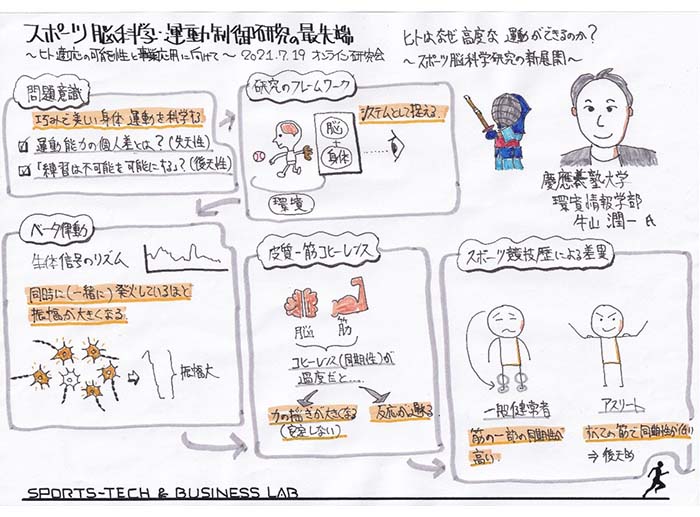 スポーツ脳科学・運動制御研究の最先端
〜ヒト適応の可能性と事業応用に向けて〜 2021.7.19 オンライン研究会
ヒトはなぜ高度な運動ができるのか?
〜スポーツ脳科学研究の新展開〜
慶應義塾大学
環境情報学部
牛山 潤一氏
問題意識
巧みで美しい身体運動を科学する
運動能力の個人差とは?(先天性)
「練習は不可能を可能にする」?(後天性)
研究のフレームワーク
システムとして捉える
脳
+
身体
環境
ベータ律動
生体信号のリズム
同時に(一緒に)発火しているほど
振幅が大きくなる
振幅大
皮質-筋コヒーレンス
脳 筋
コヒーレンス(同期性)が
過度だと....
力の揺らぎが大きくなる
(安定しない)
反応が遅れる
スポーツ競技歴による差異
一般健常者
筋の一部の同期性が
高い
アスリート
すべての筋で同期性が低い
⇒ 後天的
SPORTS-TECH & BUSINESS LAB